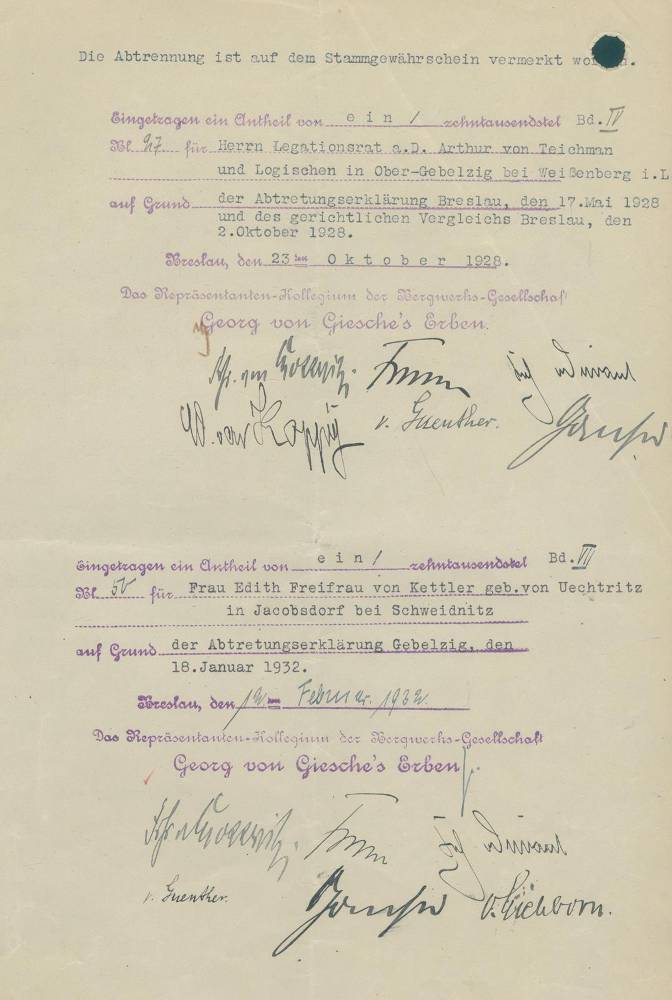 Die Abtrennung ist auf dem Stammgewährschein vermerkt
Eingetragen ein Antheil von ein / zehntausendstel Bd. IV
Bl. 27 für Herrn Legationsrat a.D. Arthur von Teichman
und Logischen in Ober-Gebelzig bei Weißenberg i.L
auf Grund der Abtretungserklärung Breslau, den 17.Mai 1928
und des gerichtlichen Vergleichs Breslau, den
2.Oktober 1928.
Breslau, den 23ten Oktober 1928.
Das Repräsentanten-Kollegium der Bergwerks-Gesellschaf
Georg von Giesche's Erben.
v. Guenther.
Eingetragen ein Antheil von ein / zehntausendstel Bd. VII
Bl. 50 für Frau Edith Freifrau von Kettler geb.von Uechtritz
in Jacobsdorf bei Schweidnitz
auf Grund der Abtretungserklärung Gebelzig, den
18.Januar 1932.
Breslau, den 12. Februar. 1932.
Das Repräsentanten-Kollegium der Bergwerks-Gesellschaft
Georg von Giesche's Erben
v. Guenther.
v. Eichborn.